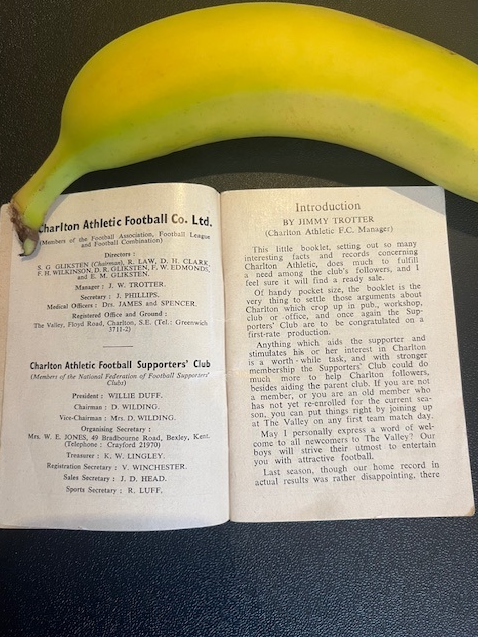 Charlton Athletic Football Co. Ltd.
(Members of the Football Association, Football League
and Football Combination)
Directors :
S. G. GLIKSTEN (Chairman), R. LAW, D. H. CLARK,
F. H. WILKINSON, D. R. GLIKSTEN, F. W. EDMONDS,
and E. M. GLIKSTEN.
Manager : J. W. TROTTER.
Secretary : J. PHILLIPS.
Medical Officers : Drs. JAMES and SPENCER.
Registered Office and Ground :
The Valley, Floyd Road, Charlton, S.E. (Tel.: Greenwich
3711-2)
Charlton Athletic Football Supporters' Club
(Members of the National Federation of Football Supporters'
Clubs)
President : WILLIE DUFF.
Chairman : D. WILDING.
Vice-Chairman : Mrs. D. WILDING.
Organising Secretary :
Mrs. W. E. JONES, 49 Bradbourne Road, Bexley, Kent.
(Telephone : Crayford 21970)
Treasurer : K. W. LINGLEY.
Registration Secretary : V. WINCHESTER.
Sales Secretary : J. D. HEAD.
Sports Secretary : R. LUFF.
Introduction
BY JIMMY TROTTER
(Charlton Athletic F.C. Manager)
This little booklet, setting out so many
interesting facts and records concerning
Charlton Athletic, does much to fulfill
a need among the club's followers, and I
feel sure it will find a ready sale.
Of handy pocket size, the booklet is the
very thing to settle those arguments about
Charlton which crop up in pub, workshop,
club or office, and once again the Sup-
porters' Club are to be congratulated on a
first-rate production.
Anything which aids the supporter and
stimulates his or her interest in Charlton
is a worth-while task, and with stronger
membership the Supporters' Club could do
much more to help Charlton followers,
besides aiding the parent club. If you are not
a member, or you are an old member who
has not yet re-enrolled for the current sea-
son, you can put things right by joining up
at The Valley on any first team match day.
May I personally express a word of wel-
come to all newcomers to The Valley? Our
boys will strive their utmost to entertain
you with attractive football.
Last season, though our home record in
actual results was rather disappointing, there